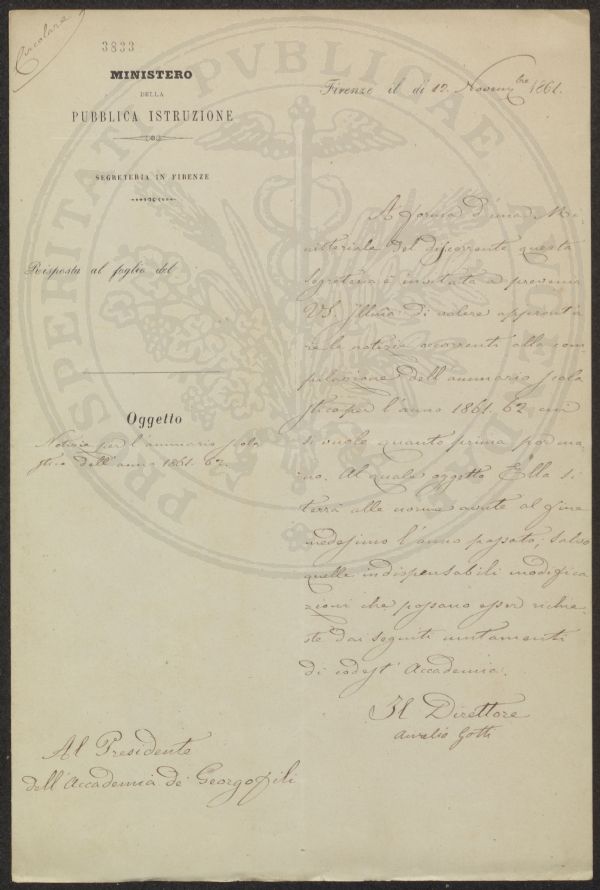 Circolare
3833
MINISTERO
DELLA
PUBBLICA ISTRUZIONE
SEGRETERIA IN FIRENZE
Risposta al foglio del
Oggetto
Notizie per l'annuario scola
stico dell'anno 1861. 62.
Firenze il dì 12. Novembre 1861.
A forma d'una Mi-
nisteriale del dì corrente questa
Segreteria è invitata a prevenir
VS. Illma di volere appronta
re le notizie occorrenti alla com
pilazione dell'annuario scola
stico per l'anno 1861. 62. cui
si vuole quanto prima por ma-
no. Al quale oggetto Ella si
terrà alle norme avute al fine
medesimo l'anno passato; salvo
quelle indispensabili modifica
zioni che possano esser richie-
ste dai seguiti mutamenti
di codest' Accademia.
Il Direttore
Aurelio Gotti
Al Presidente
dell'Accademia de' Georgofili
PROSPERITATI PVBLICAE AVGENDAE